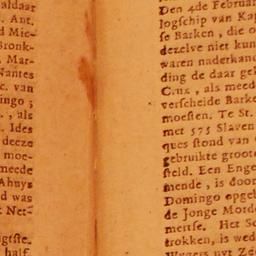 aldaar
. Ant.
d Mic-
Bronk-
, Mar-
Nantes
c. van
ingo ;
. , als
. Ides
deeze
moe-
meede
Ahuys
d was
t Net-
igtste.
half
Den 4de Februar
logschip van Kap
se Barken , die o
dezelve niet kun
waren naderhand
ding de daar gek
Crux , als meed
verscheide Barke
moesten. Te St.
met 575 Slaven
ques stond van
gebruikte groote
steld. Een Enge
mende , is door
Domingo opgeb
de Jonge Morde
mertse. Het Sc
trokken, is wed
Wygers uyt Ze